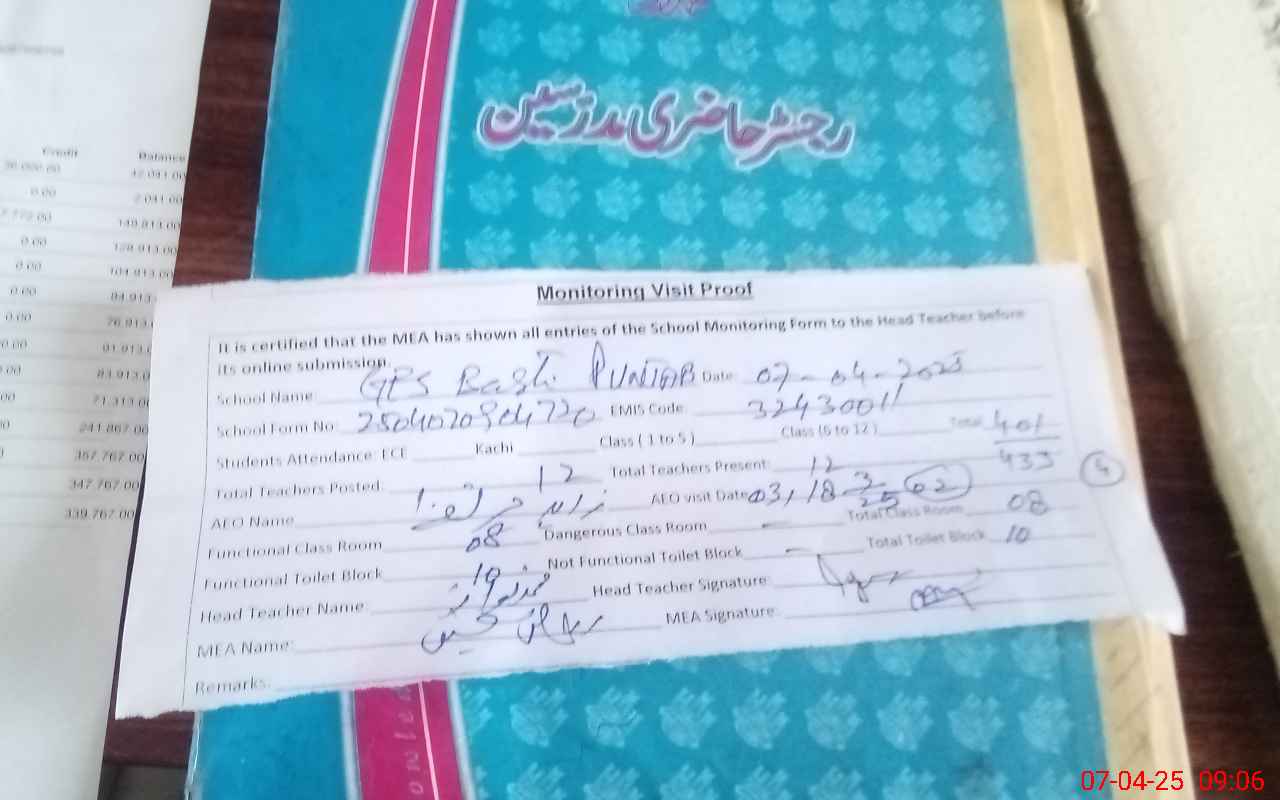 رجسٹر حاضری مدرسین
Credit Balance
0.00 2 041 00
149 813.00
0.00 128 913 00
0.00 104 913.00
0.00 84 913
0.00 76 913
91 913
83 913
71 313
241 867 00
357 767 00
347 767.00
339.767.00
Monitoring Visit Proof
It is certified that the MEA has shown all entries of the School Monitoring Form to the Head Teacher before
its online submission.
School Name: GPS Basti PUNJAB Date: 07-04-2025
School Form No: EMIS Code: 32430011
Students Attendance: ECE Kachi Class ( 1 to 5 ) Class (6 to 12 ) Total 401
433
Total Teachers Posted: 12 Total Teachers Present: 12
4
AEO Name AEO visit Date 03, 18 3/25 02
Functional Class Room 08 Dangerous Class Room - Total Class Room 08
Functional Toilet Block 10 Not Functional Toilet Block - Total Toilet Block 10
Head Teacher Name: Head Teacher Signature:
MEA Name: MEA Signature:
Remarks:
07-04-25 09:06